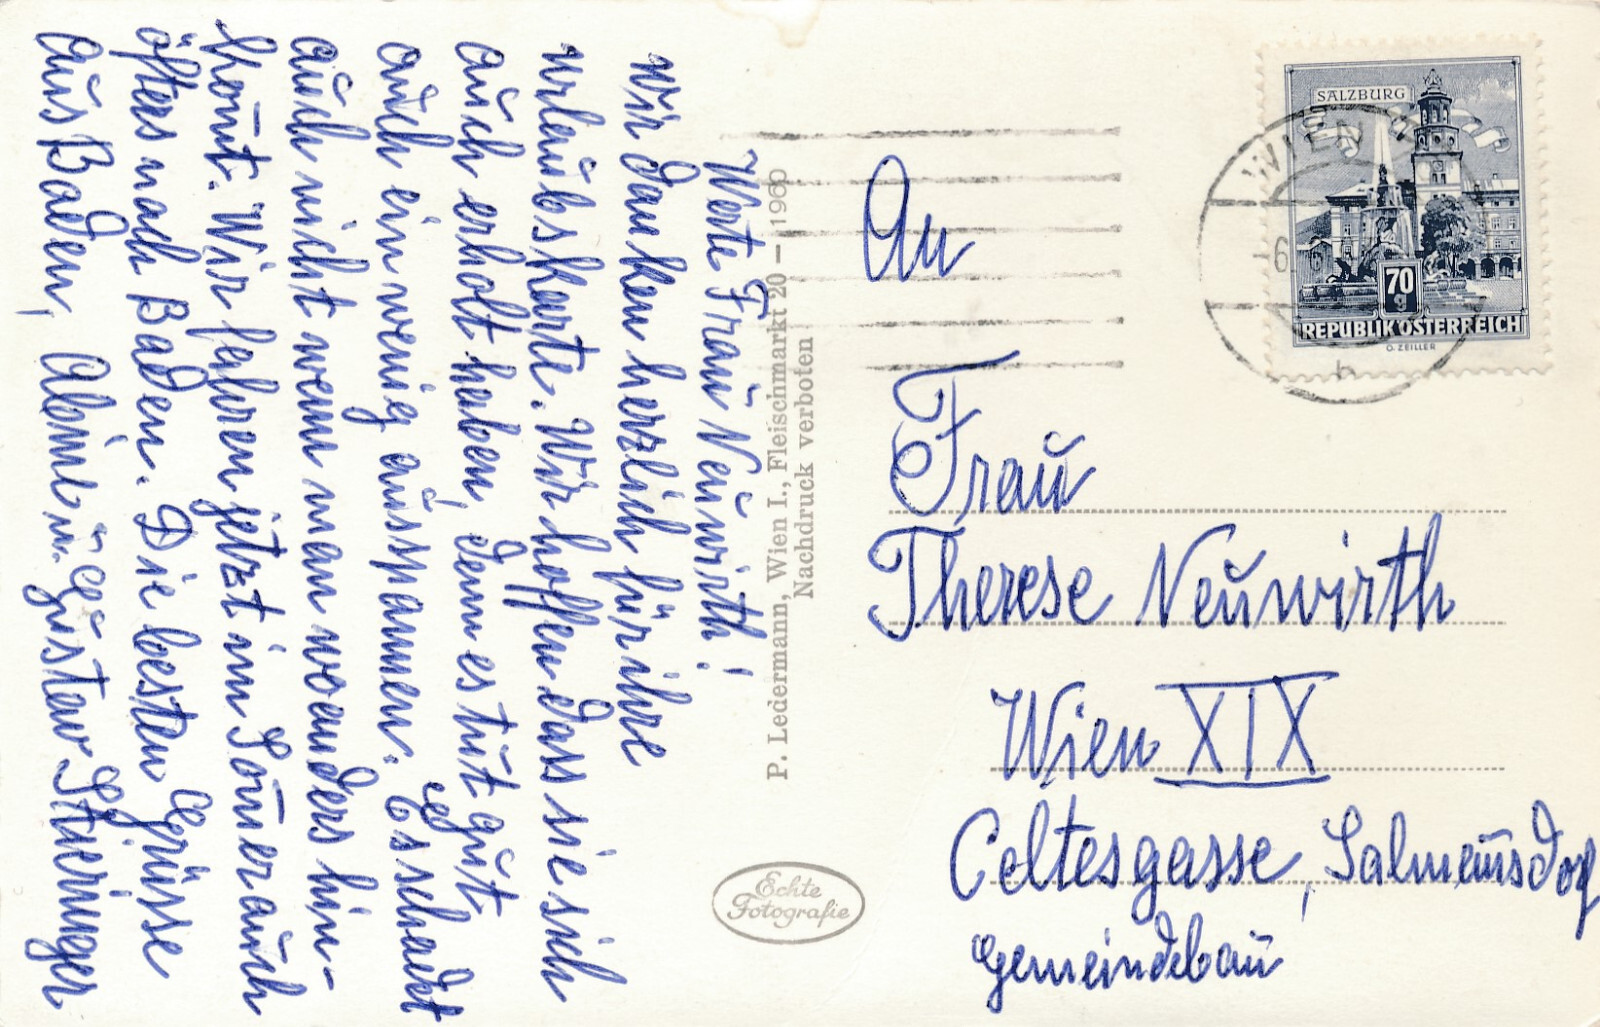 Werte Frau Neuwirth!
wir danken herzlich für ihre
urlaubskarte. Wir hoffen dass sie sich
auch erholt haben, denn es tut gut
auch ein wenig ausspannen. Es schadet
auch nicht wenn man woanders hin-
kom̄t. Wir fahren jetzt im Som̄er auch
öfters nach Baden. Die besten Grüsse
aus Baden, u. Gustav
P. Ledermann, Wien I., Fleischmarkt 20 – 1960
Nachdruck verboten
Echte
Fotografie
SALZBURG
70
g
REPUBLIK ÖSTERREICH
O. ZEILLER
WIEN
An
Frau
Therese Neuwirth
Wien XIX
Celtesgasse, Salmansdorf
Gemeindebau